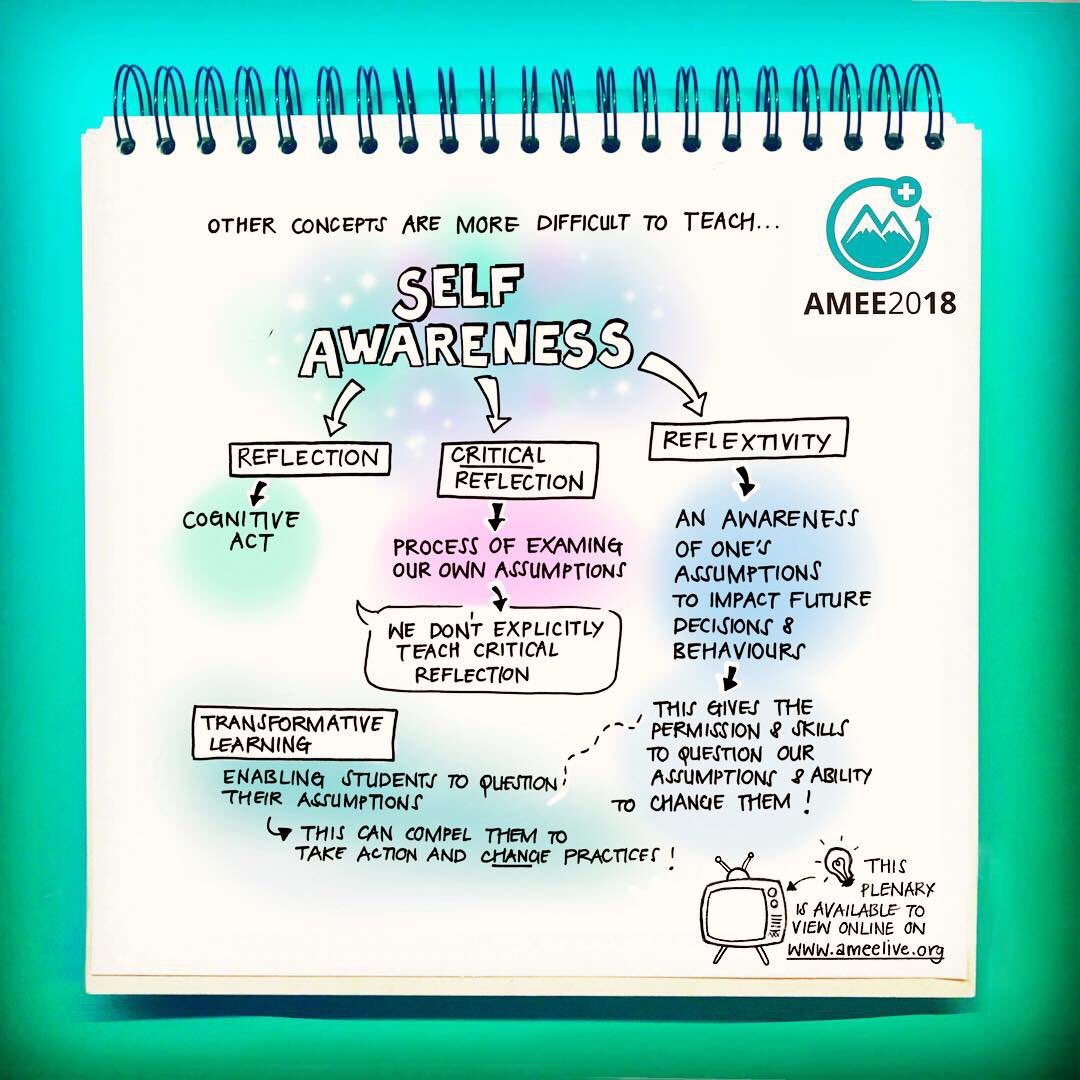 OTHER CONCEPTS ARE MORE DIFFICULT TO TEACH...
AMEE2018
SELF
AWARENESS
REFLECTION
COGNITIVE
ACT
CRITICAL
REFLECTION
PROCESS OF EXAMING
OUR OWN ASSUMPTIONS
WE DON'T EXPLICITLY
TEACH CRITICAL
REFLECTION
REFLEXTIVITY
AN AWARENESS
OF ONE'S
ASSUMPTIONS
TO IMPACT FUTURE
DECISIONS &
BEHAVIOURS
THIS GIVES THE
PERMISSION & SKILLS
TO QUESTION OUR
ASSUMPTIONS & ABILITY
TO CHANGE THEM !
TRANSFORMATIVE
LEARNING
ENABLING STUDENTS TO QUESTION
THEIR ASSUMPTIONS
THIS CAN COMPEL THEM TO
TAKE ACTION AND CHANGE PRACTICES !
THIS
PLENARY
IS AVAILABLE TO
VIEW ONLINE ON
www.ameelive.org